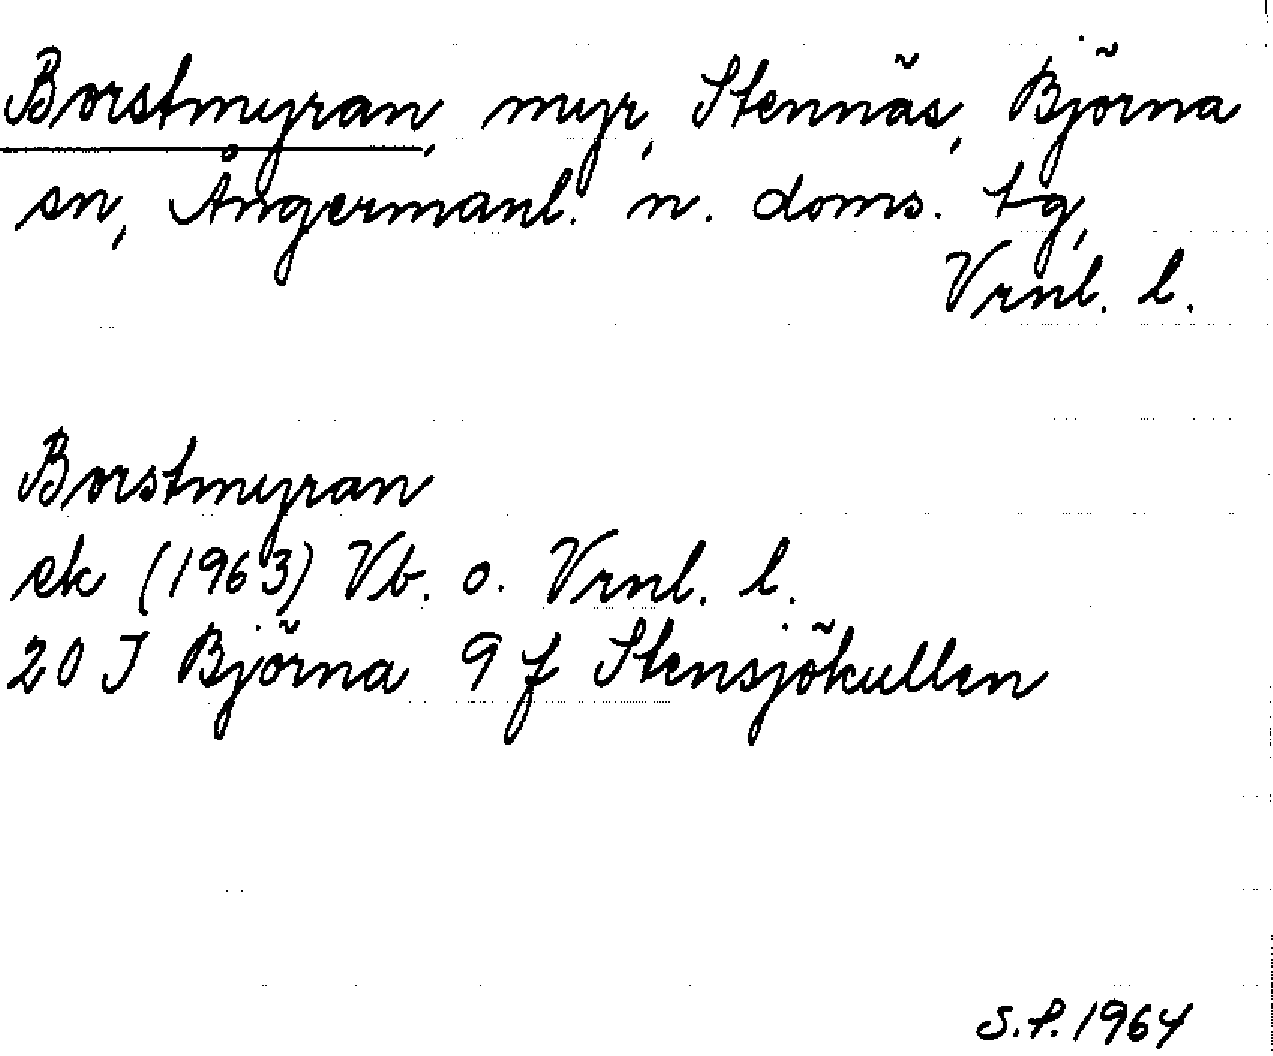 Borstmyran, myr, Stennäs, Björna
sn, Ångermanl. n. doms. tg,
Vrnl. l.
Borstmyran
ek (1963) Vb. o. Vrnl. l.
20 J Björna 9 f Stensjökullen
S.P. 1964